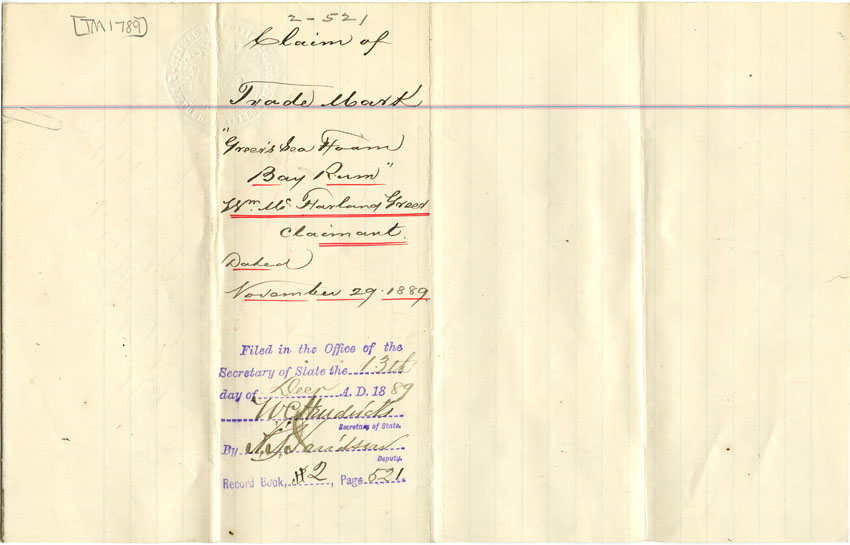 [TM1789]
2-521
Claim of
Trade Mark
"Greer's Sea Foam
Bay Rum"
Wm. Mc. Farland Greer
Claimant.
Dated
November 29. 1889
Filed in the Office of the
Secretary of State the 13th
day of Decr A. D. 1889
W C Hendricks
Secretary of State.
By Davidson
Deputy.
Record Book, #2, Page 521.